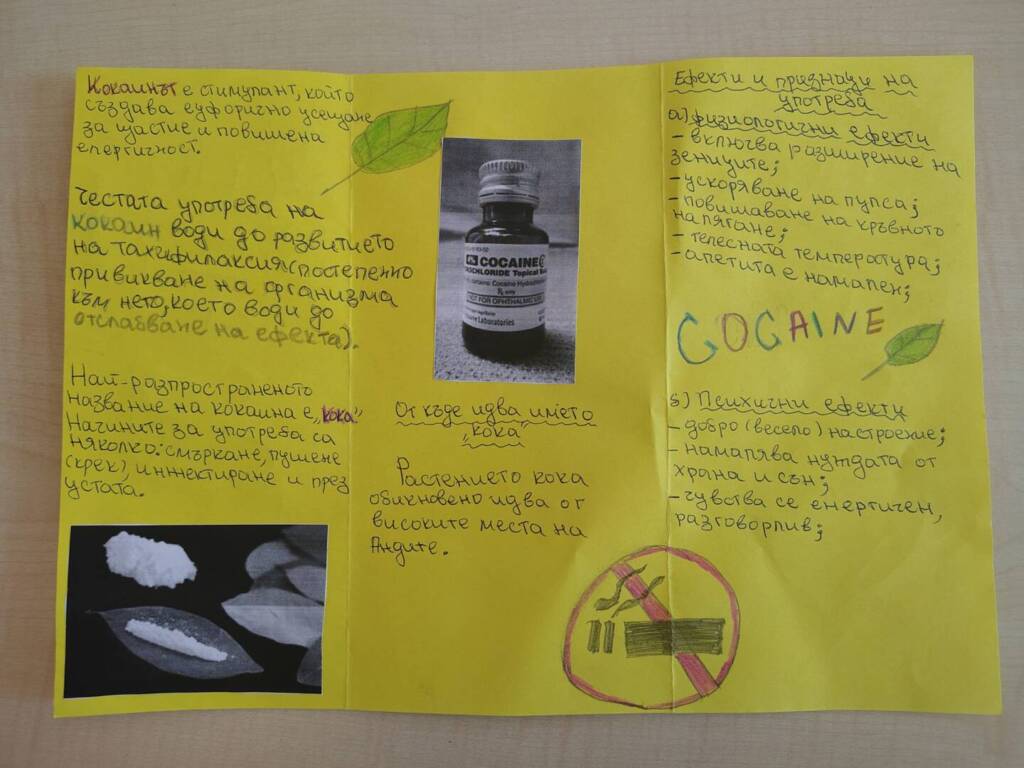 Кокаинът е стимулант, който
създава еуфорично усещане
за щастие и повишена
енергичност.
Честата употреба на
кокаин води до развитието
на тахифилаксия (постепенно
привикване на организма
към него, което води до
отслабване на ефекта).
Най-разпространеното
название на кокаина е „кока“.
Начините за употреба са
няколко: смъркане, пушене
(крек), инжектиране и през
устата.
COCAINE
HYDROCHLORIDE Topical
Cocaine Hydrochloride
Rx only
NOT FOR OPHTHALMIC USE
Laboratories
От къде идва името
„кока“
Растението кока
обикновено идва от
високите места на
Андите.
Ефекти и признаци на
употреба
а) физиологични ефекти
- включва разширение на
зениците;
- ускоряване на пулса;
- повишаване на кръвното
налягане;
- телесната температура;
- апетита е намален;
COCAINE
б) Психични ефекти
- добро (весело) настроение;
- намалява нуждата от
храна и сън;
- чувства се енергичен,
разговорлив;